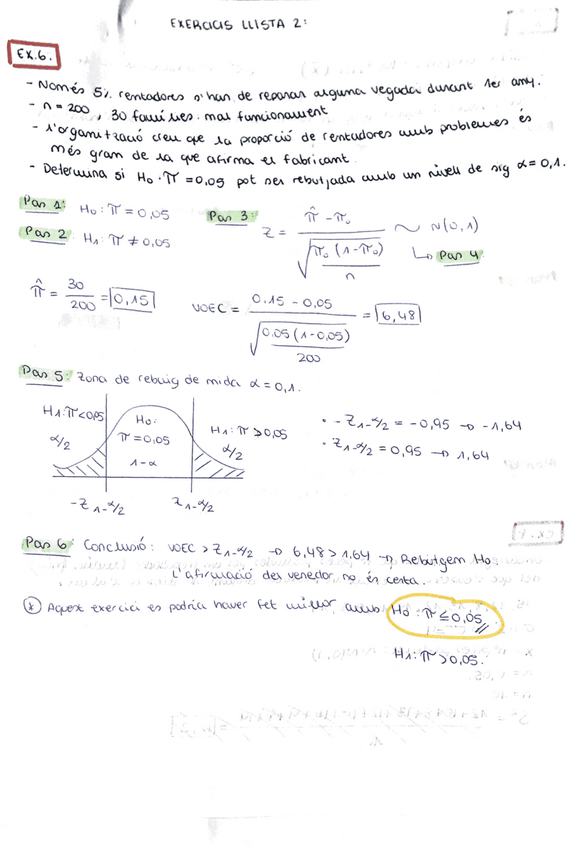 EXERCICIS LLISTA 2:
EX.6.
- Només 5% rentadores s'han de reparar alguna vegada durant 1er any.
- n = 200, 30 famílies. mal funcionament
- L'organització creu que la proporció de rentadores amb problemes és
més gran de la que afirma el fabricant.
- Determina si H0: π = 0,05 pot ser rebutjada amb un nivell de sig α = 0,1.
Pas 1: H0: π = 0,05
Pas 2: H1: π ≠ 0,05
Pas 3: Z = (π̂ - π0) / √(π0 (1-π0) / n) ~ N(0,1)
↳ Pas 4
π̂ = 30/200 = 0,15
VOEC = (0.15 - 0,05) / √(0.05 (1-0,05) / 200) = 6,48
Pas 5: Zona de rebuig de mida α = 0,1.
H1: π < 0,05
α/2
H0:
π = 0,05
1-α
H1: π > 0,05
α/2
-Z 1-α/2
Z 1-α/2
• - Z 1-α/2 = -0,95 → -1,64
• Z 1-α/2 = 0,95 → 1,64
Pas 6: Conclusió: VOEC > Z 1-α/2 → 6,48 > 1,64 → Rebutgem H0.
L'afirmació del venedor no és certa.
(*) Aquest exercici es podria haver fet millor amb H0: π ≤ 0,05
H1: π > 0,05.